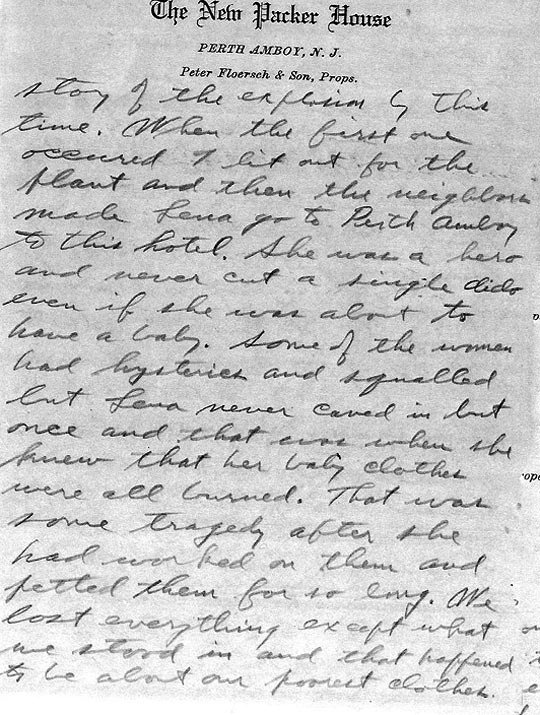 The New Packer House
PERTH AMBOY, N. J.
Peter Floersch & Son, Props.
story of the explosion by this
time. When the first one
occured I lit out for the
plant and then the neighbors
made Lena go to Perth Amboy
to this hotel. She was a hero
and never cut a single dido
even if she was about to
have a baby. Some of the women
had hysterics and squalled
but Lena never caved in but
once and that was when she
knew that her baby clothes
were all burned. That was
some tragedy after she
had worked on them and
petted them for so long. We
lost everything except what
we stood in and that happened
to be about our poorest clothes.